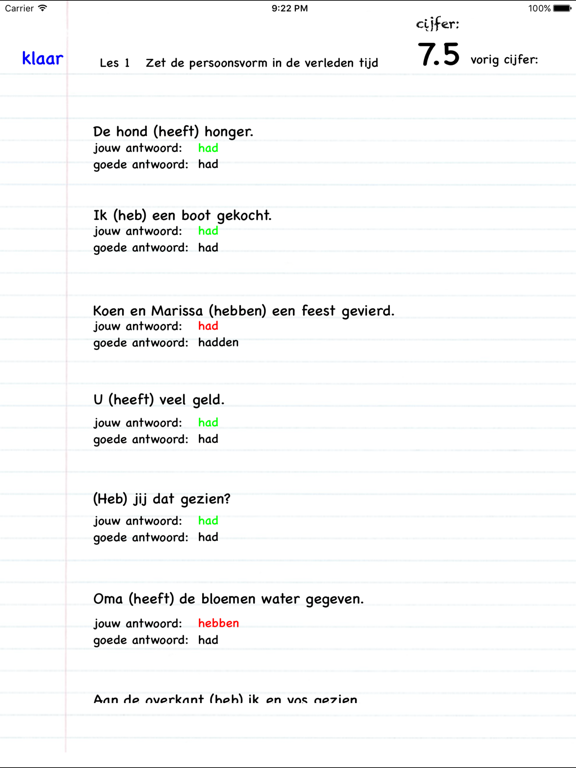 Carrier 9:22 PM 100%
cijfer:
klaar Les 1 Zet de persoonsvorm in de verleden tijd 7.5 vorig cijfer:
De hond (heeft) honger.
jouw antwoord: had
goede antwoord: had
Ik (heb) een boot gekocht.
jouw antwoord: had
goede antwoord: had
Koen en Marissa (hebben) een feest gevierd.
jouw antwoord: had
goede antwoord: hadden
U (heeft) veel geld.
jouw antwoord: had
goede antwoord: had
(Heb) jij dat gezien?
jouw antwoord: had
goede antwoord: had
Oma (heeft) de bloemen water gegeven.
jouw antwoord: hebben
goede antwoord: had
Aan de overkant (heb) ik en vos gezien